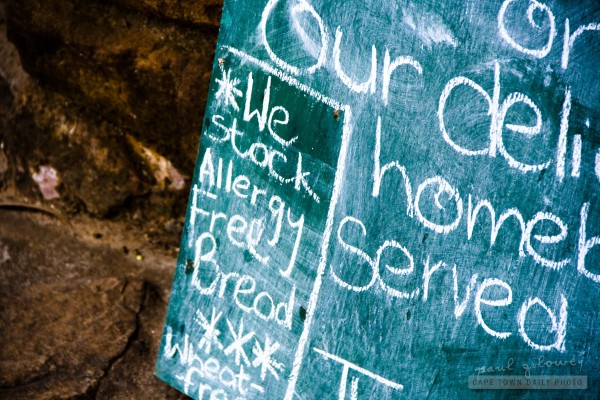 *We
stock
Allergy
Free
Bread
***
Wheat-
free
Our deli
home
Served
CAPE TOWN DAILY PHOTO